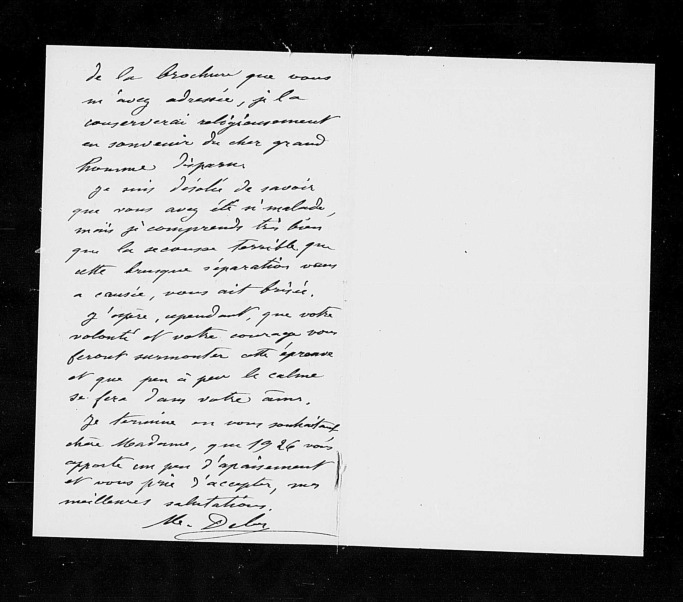 de la brochure que vous
m'avez adressée, je la
conserverai religieusement
en souvenir du cher grand
homme disparu.
Je suis désolée de savoir
que vous avez été si malade,
mais je comprends très bien
que la secousse terrible que
cette brusque séparation vous
a causée, vous ait brisée.
J'espère, cependant, que votre
volonté et votre courage vous
feront surmonter cette épreuve
et que peu à peu le calme
se fera dans votre âme.
Je termine en vous souhaitant
chère Madame, que 1926 vous
apporte un peu d'apaisement
et vous prie d'accepter, mes
meilleures salutations.